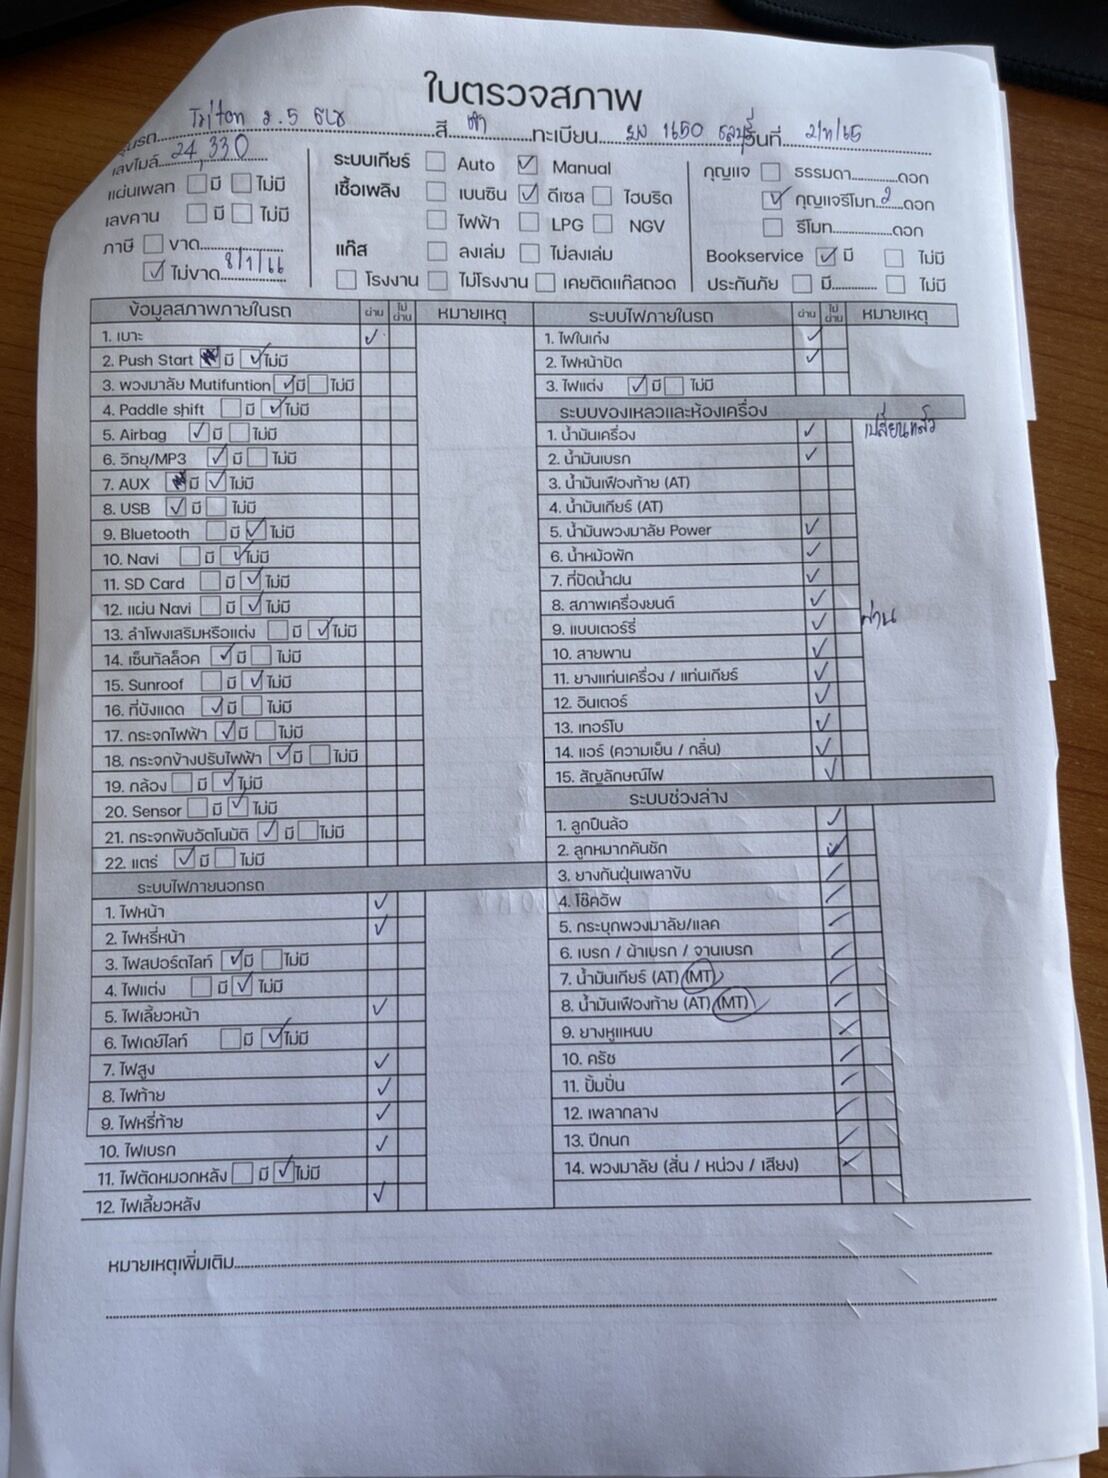 ใบตรวจสภาพ
รุ่นรถ Triton 2.5 สี ดำ ทะเบียน ยง 1650 ชลบุรี วันที่
เลขไมล์ 24,330
แผ่นเพลท มี ไม่มี
เลขคาน มี ไม่มี
ภาษี ขาด
ไม่ขาด 8/1/66
ระบบเกียร์ Auto Manual
เชื้อเพลิง เบนซิน ดีเซล ไฮบริด
ไฟฟ้า LPG NGV
แก๊ส ลงเล่ม ไม่ลงเล่ม
โรงงาน ไม่โรงงาน เคยติดแก๊สถอด
กุญแจ ธรรมดา ดอก
กุญแจรีโมท 2 ดอก
รีโมท ดอก
Bookservice มี ไม่มี
ประกันภัย มี ไม่มี
ข้อมูลสภาพภายในรถ ผ่าน ไม่ผ่าน หมายเหตุ
1. เบาะ
2. Push Start มี ไม่มี
3. พวงมาลัย Mutifuntion มี ไม่มี
4. Paddle shift มี ไม่มี
5. Airbag มี ไม่มี
6. วิทยุ/MP3 มี ไม่มี
7. AUX มี ไม่มี
8. USB มี ไม่มี
9. Bluetooth มี ไม่มี
10. Navi มี ไม่มี
11. SD Card มี ไม่มี
12. แผ่น Navi มี ไม่มี
13. ลำโพงเสริมหรือแต่ง มี ไม่มี
14. เซ็นทัลล็อค มี ไม่มี
15. Sunroof มี ไม่มี
16. ที่บังแดด มี ไม่มี
17. กระจกไฟฟ้า มี ไม่มี
18. กระจกข้างปรับไฟฟ้า มี ไม่มี
19. กล้อง มี ไม่มี
20. Sensor มี ไม่มี
21. กระจกพับอัตโนมัติ มี ไม่มี
22. แตร่ มี ไม่มี
ระบบไฟภายนอกรถ
1. ไฟหน้า
2. ไฟหรี่หน้า
3. ไฟสปอร์ตไลท์ มี ไม่มี
4. ไฟแต่ง มี ไม่มี
5. ไฟเลี้ยวหน้า
6. ไฟเดย์ไลท์ มี ไม่มี
7. ไฟสูง
8. ไฟท้าย
9. ไฟหรี่ท้าย
10. ไฟเบรก
11. ไฟตัดหมอกหลัง มี ไม่มี
12. ไฟเลี้ยวหลัง
ระบบไฟภายในรถ ผ่าน ไม่ผ่าน หมายเหตุ
1. ไฟในเก๋ง
2. ไฟหน้าปัด
3. ไฟแต่ง มี ไม่มี
ระบบของเหลวและห้องเครื่อง
1. น้ำมันเครื่อง เปลี่ยนแล้ว
2. น้ำมันเบรก
3. น้ำมันเฟืองท้าย (AT)
4. น้ำมันเกียร์ (AT)
5. น้ำมันพวงมาลัย Power
6. น้ำหม้อพัก
7. ที่ปัดน้ำฝน
8. สภาพเครื่องยนต์
9. แบบเตอร์รี่ ผ่าน
10. สายพาน
11. ยางแท่นเครื่อง / แท่นเกียร์
12. อินเตอร์
13. เทอร์โบ
14. แอร์ (ความเย็น / กลิ่น)
15. สัญลักษณ์ไฟ
ระบบช่วงล่าง
1. ลูกปืนล้อ
2. ลูกหมากคันชัก
3. ยางกันฝุ่นเพลาขับ
4. โช๊คอัพ
5. กระบุกพวงมาลัย/แลค
6. เบรก / ผ้าเบรก / จานเบรก
7. น้ำมันเกียร์ (AT) (MT)
8. น้ำมันเฟืองท้าย (AT) (MT)
9. ยางหูแหนบ
10. ครัช
11. ปั้มปั่น
12. เพลากลาง
13. ปีกนก
14. พวงมาลัย (สั่น / หน่วง / เสียง)
หมายเหตุเพิ่มเติม